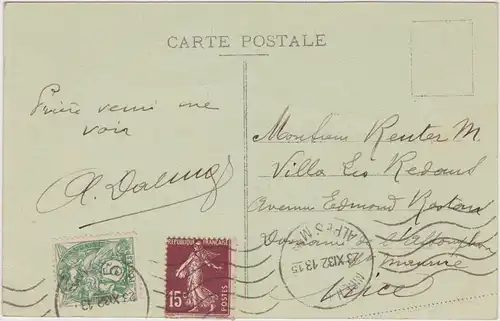 CARTE POSTALE
Prière venir me
voir
A. Dalmas
Monsieur Reuter M.
Villa Les Redans
Avenue Edmond Rostand
Domaine de l'
Nice
5
REPUBLIQUE FRANÇAISE
15c
POSTES
ALPES M
23 XI 32 13 15
23 XI 32 13